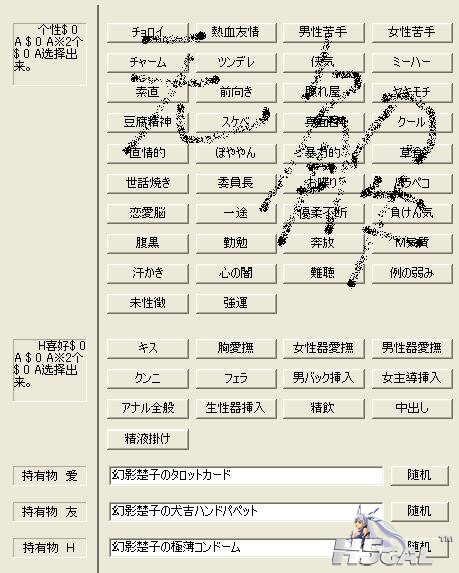 个性$０
A $０A※2个
$０A选择出
来。
チョロイ 熱血友情 男性苦手 女性苦手
チャーム ツンデレ 侠気 ミーハー
素直 前向き 照れ屋 ヤキモチ
豆腐精神 スケベ 真面目 クール
直情的 ぽややん 暴力的 草食
世話焼き 委員長 お喋り ハラペコ
恋愛脳 一途 優柔不断 負けん気
腹黒 勤勉 奔放 M気質
汗かき 心の闇 難聴 例の弱み
未性徴 強運
H喜好$０
A $０A※2个
$０A选择出
来。
キス 胸愛撫 女性器愛撫 男性器愛撫
クンニ フェラ 男バック挿入 女主導挿入
アナル全般 生性器挿入 精飲 中出し
精液掛け
持有物 愛 幻影楚子のタロットカード 随机
持有物 友 幻影楚子の犬吉ハンドパペット 随机
持有物 H 幻影楚子の極薄コンドーム 随机
H5GAL™